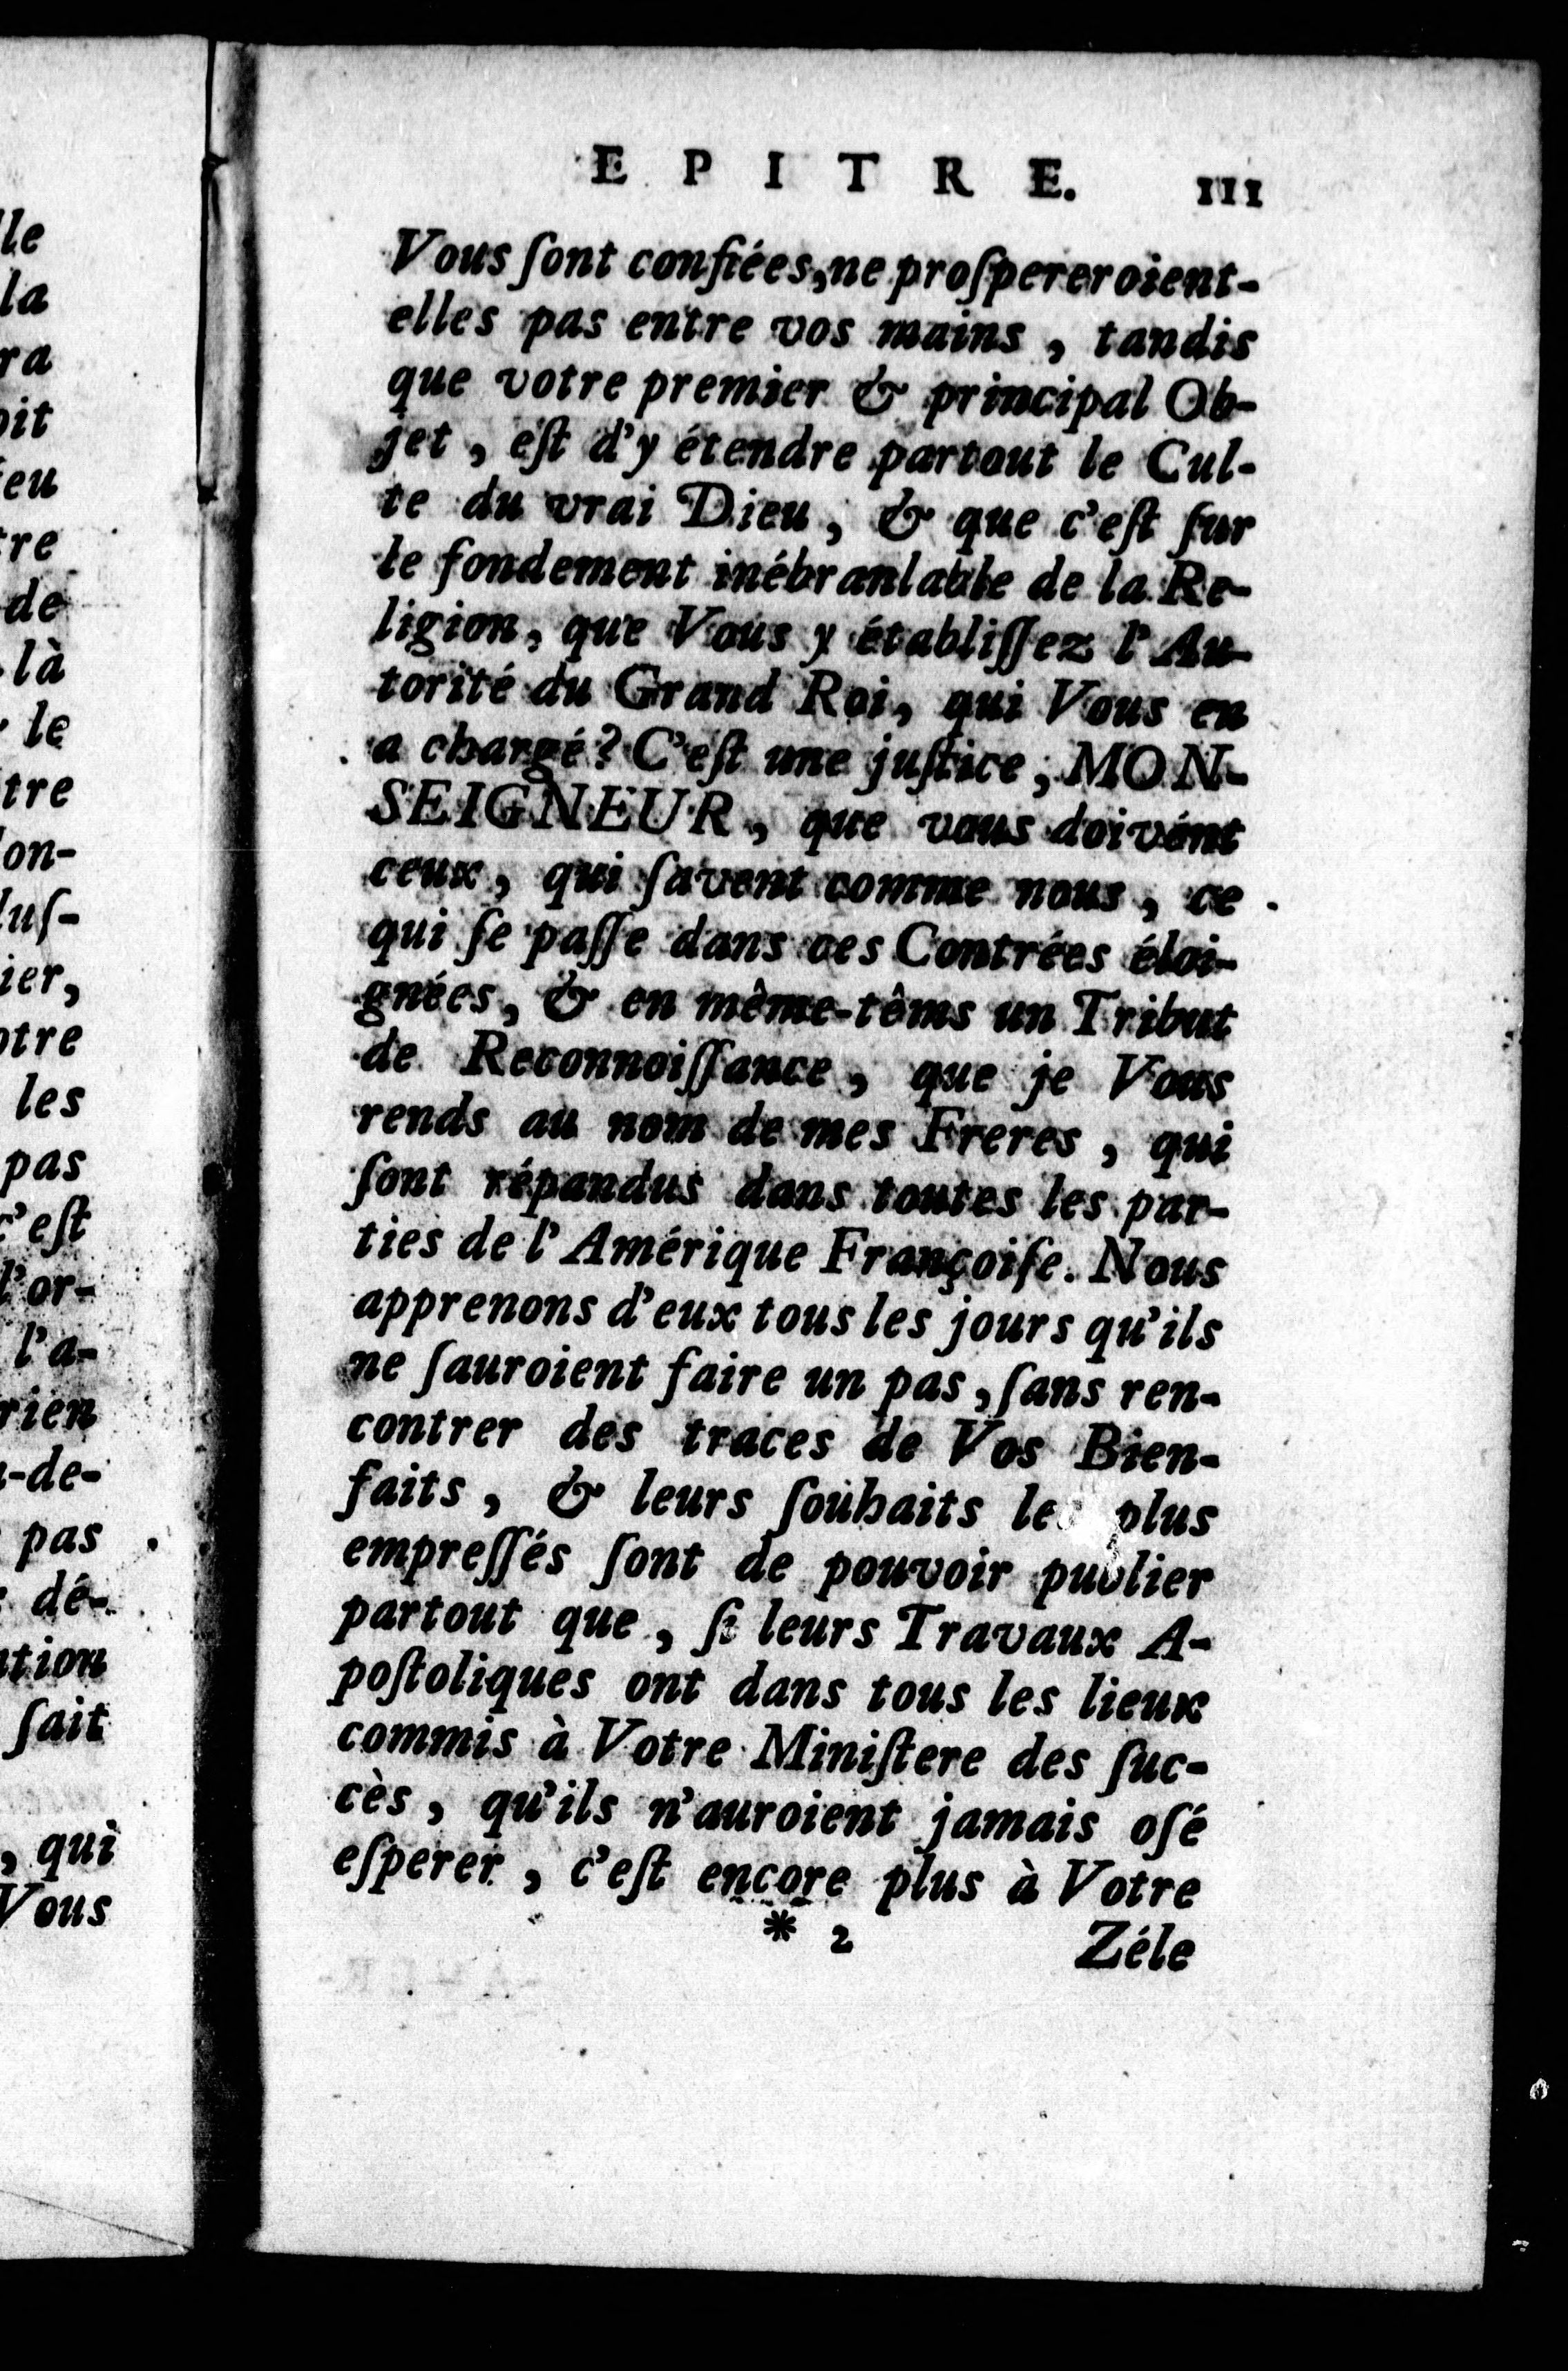 E P I T R E. III
Vous ſont confiées, ne proſpereroient-
elles pas entre vos mains, tandis
que votre premier & principal Ob-
jet, eſt d'y étendre partout le Cul-
te du vrai Dieu, & que c'eſt ſur
le fondement inébranlable de la Re-
ligion, que Vous y établiſſez l'Au-
torité du Grand Roi, qui Vous en
a chargé? C'eſt une juſtice, MON-
SEIGNEUR, que vous doivent
ceux, qui ſavent comme nous, ce
qui ſe paſſe dans ces Contrées éloi-
gnées, & en même-têms un Tribut
de Reconnoiſſance, que je Vous
rends au nom de mes Freres, qui
ſont répandus dans toutes les par-
ties de l'Amérique Françoiſe. Nous
apprenons d'eux tous les jours qu'ils
ne ſauroient faire un pas, ſans ren-
contrer des traces de Vos Bien-
faits, & leurs ſouhaits les plus
empreſſés ſont de pouvoir publier
partout que, ſi leurs Travaux A-
poſtoliques ont dans tous les lieux
commis à Votre Miniſtere des ſuc-
cès, qu'ils n'auroient jamais oſé
eſperer, c'eſt encore plus à Votre
* 2 Zéle
le
la
ra
oit
eu
re
de
là
le
tre
on-
luſ-
ier,
otre
les
pas
c'eſt
l'or-
l'a-
rien
-de-
pas
dé-
tion
ſait
, qui
Vous